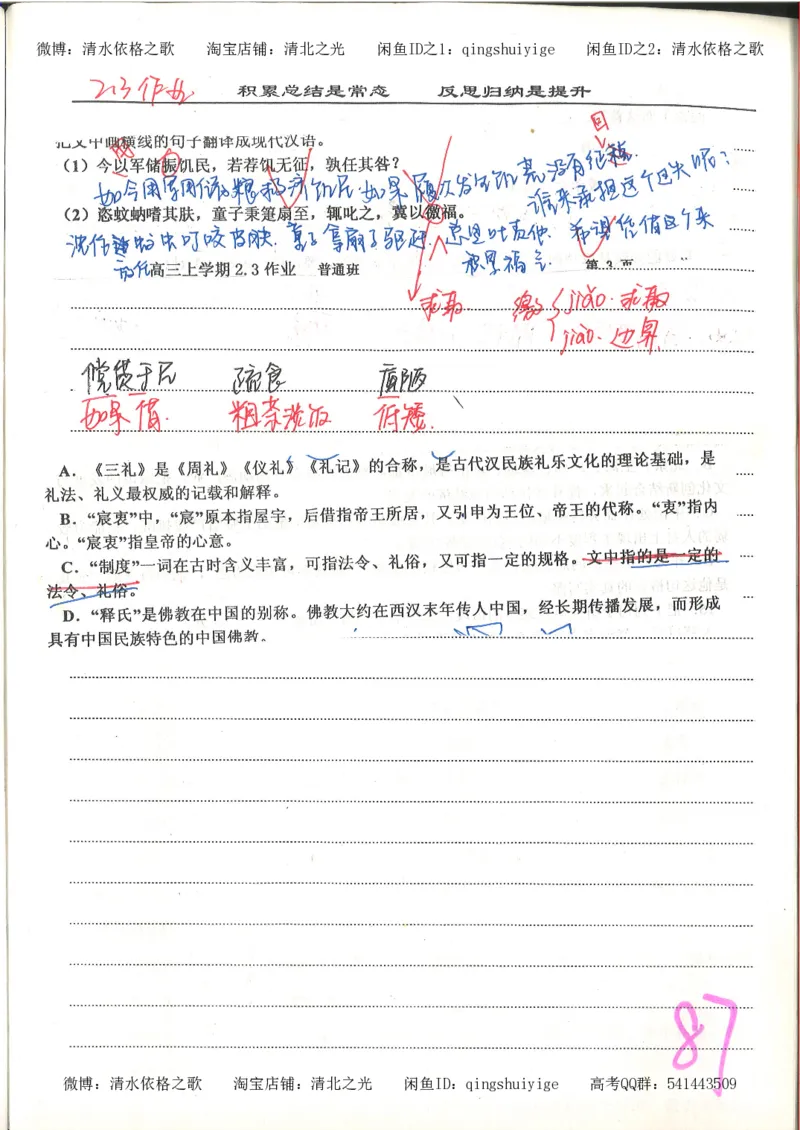 微博：清水依格之歌 淘宝店铺：清北之光 闲鱼ID之1：qingshuiyige 闲鱼ID之2：清水依格之歌
2.3作业 积累总结是常态 反思归纳是提升
把文中画横线的句子翻译成现代汉语。
（1）今以军储振饥民，若荐饥无征，孰任其咎？
如今用军用储粮救济饥民，如果屡次发生饥荒没有征，谁来承担这个过失呢？
（2）恣蚊蚋嗜其肤，童子秉箑扇至，辄叱之，冀以徼福。
叮咬皮肤，童子拿扇子驱赶，总是叱责他，希望凭借这个来积累福气
高三上学期 2.3 作业 普通班 第 3 页
求取 徼 jiǎo. 求取
jiào. 边界
傥贷于民 疏食 庳陋
如果 借 粗茶淡饭 低矮
A．《三礼》是《周礼》《仪礼》《礼记》的合称，是古代汉民族礼乐文化的理论基础，是
礼法、礼义最权威的记载和解释。
B．“宸衷”中，“宸”原本指屋宇，后借指帝王所居，又引申为王位、帝王的代称。“衷”指内
心。“宸衷”指皇帝的心意。
C．“制度”一词在古时含义丰富，可指法令、礼俗，又可指一定的规格。文中指的是一定的
法令、礼俗。
D．“释氏”是佛教在中国的别称。佛教大约在西汉末年传人中国，经长期传播发展，而形成
具有中国民族特色的中国佛教。
87
微博：清水依格之歌 淘宝店铺：清北之光 闲鱼ID：qingshuiyige 高考QQ群：541443509